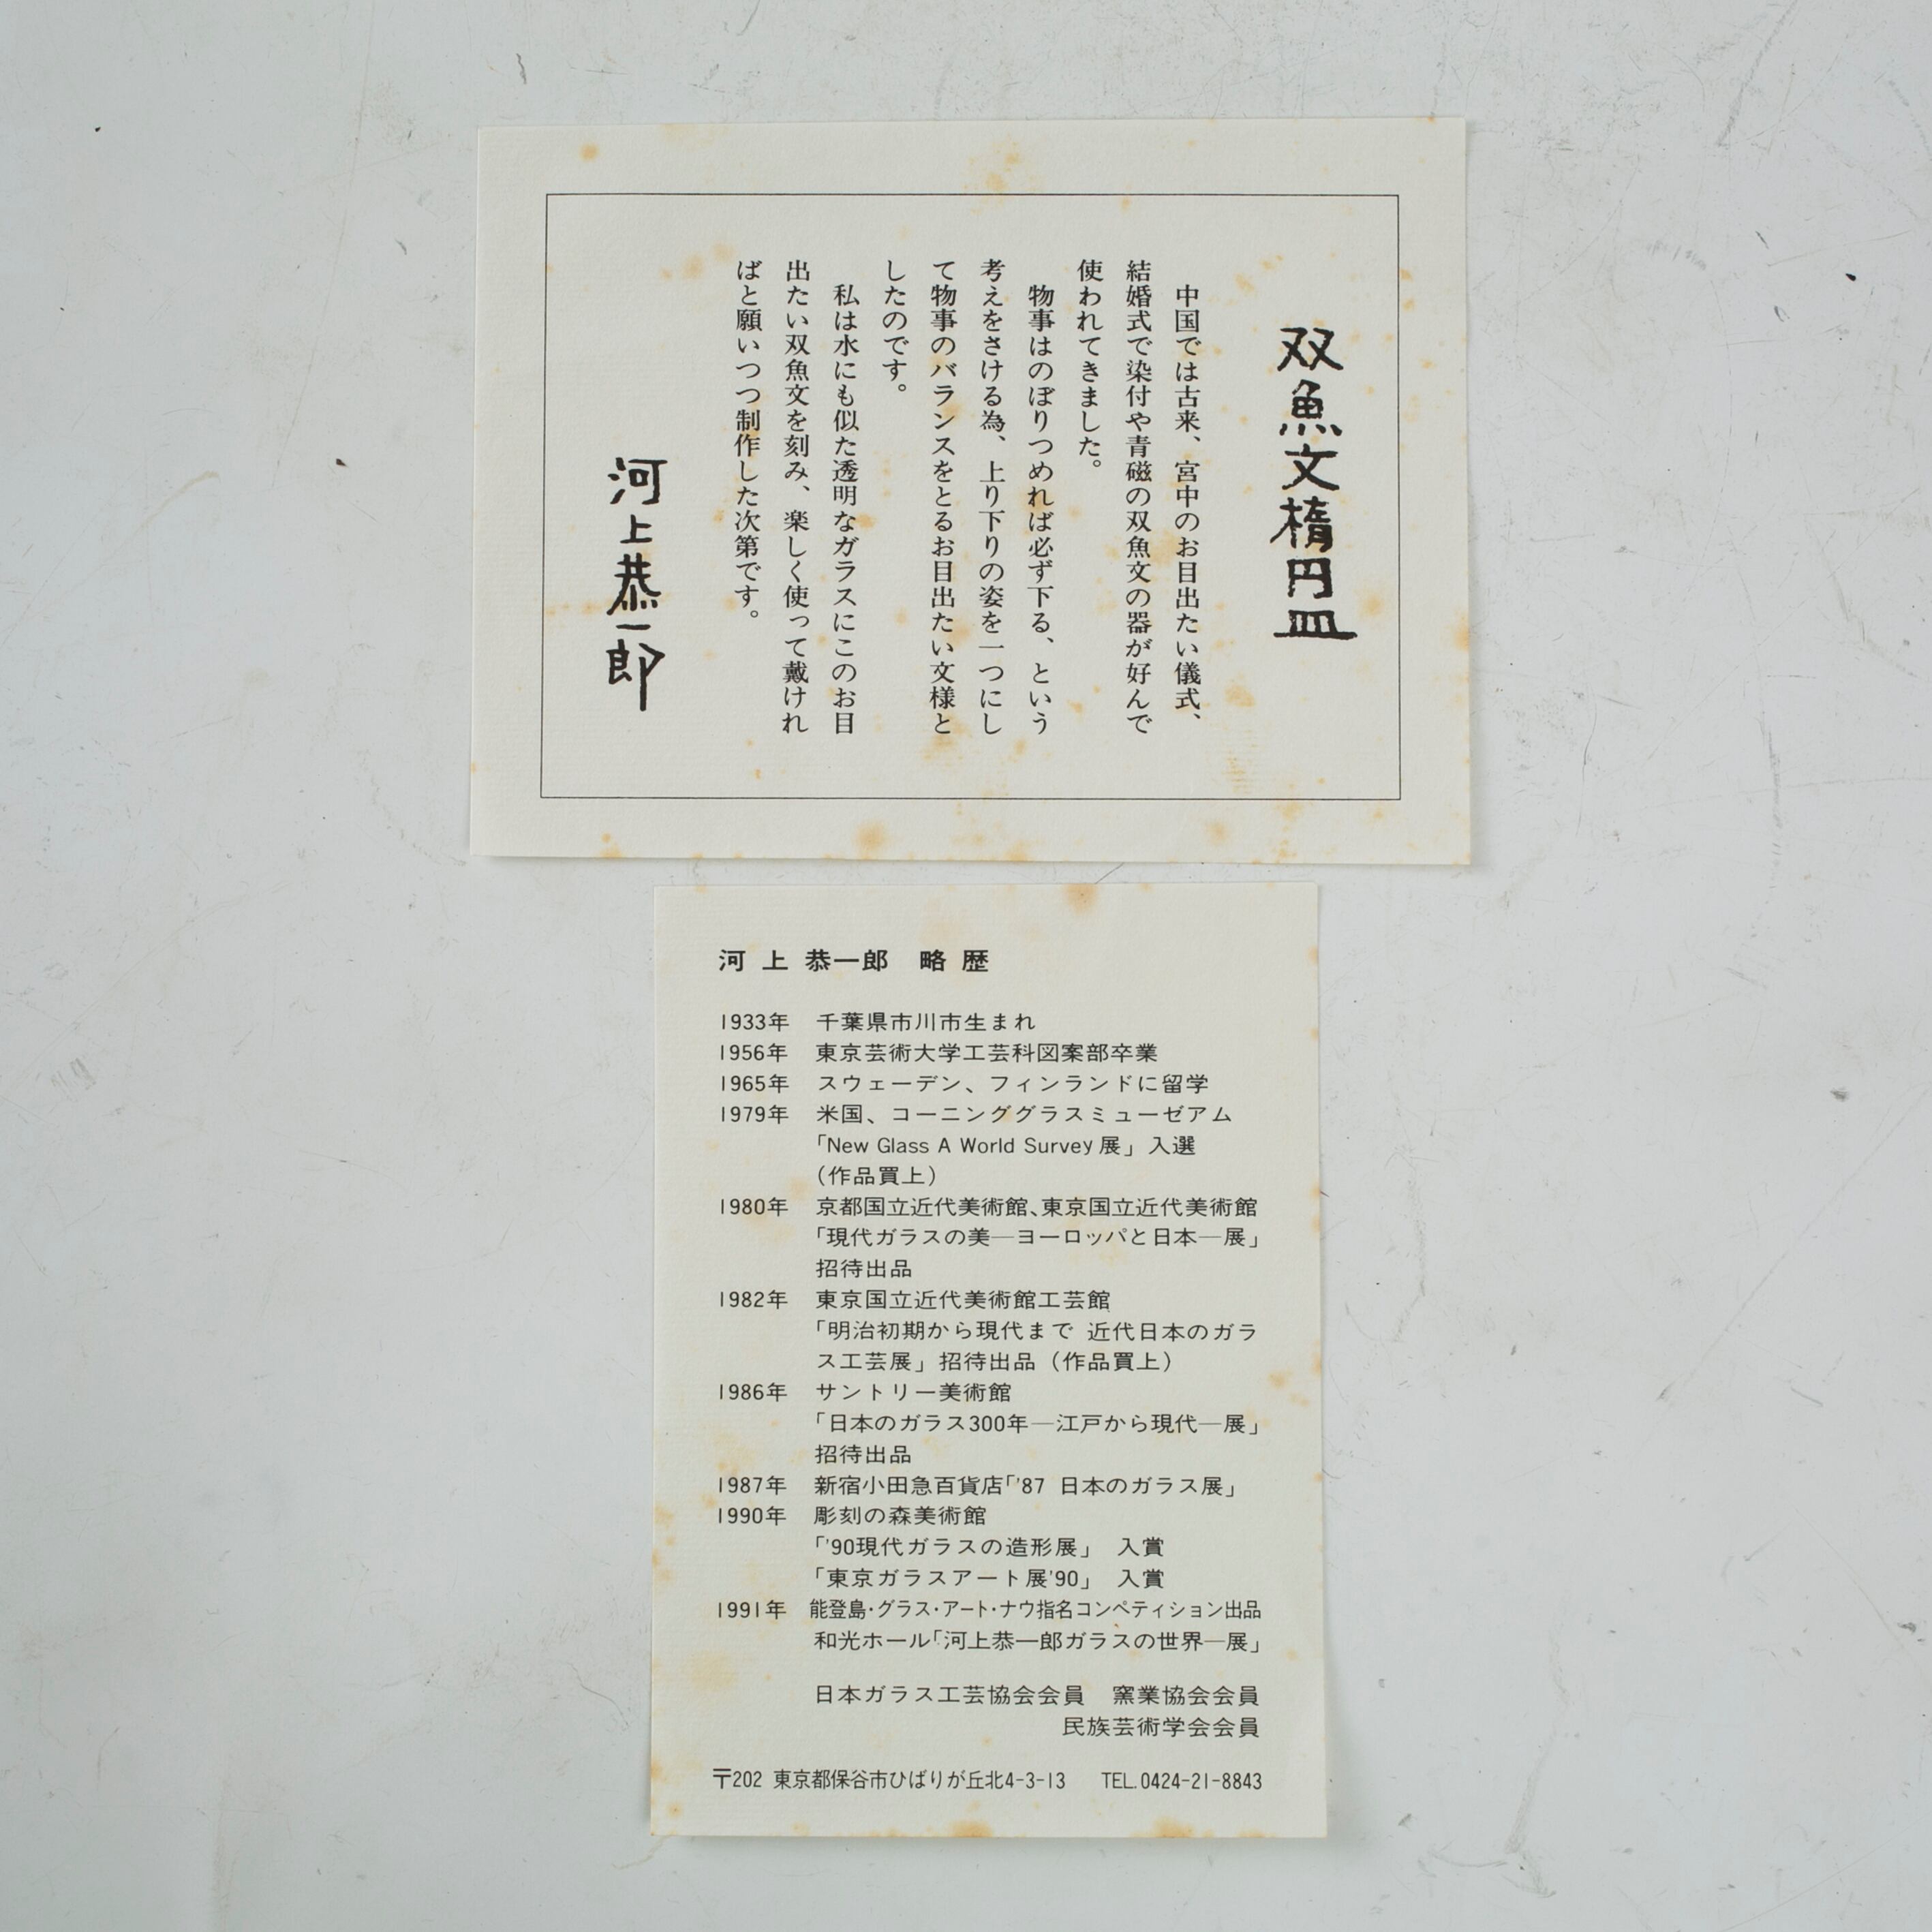 双魚文楕円皿
中国では古来、宮中のお目出たい儀式、
結婚式で染付や青磁の双魚文の器が好んで
使われてきました。
物事はのぼりつめれば必ず下る、という
考えをさける為、上り下りの姿を一つにし
て物事のバランスをとるお目出たい文様と
したのです。
私は水にも似た透明なガラスにこのお目
出たい双魚文を刻み、楽しく使って戴けれ
ばと願いつつ制作した次第です。
河上恭一郎
河上恭一郎 略歴
1933年 千葉県市川市生まれ
1956年 東京芸術大学工芸科図案部卒業
1965年 スウェーデン、フィンランドに留学
1979年 米国、コーニンググラスミューゼアム
「New Glass A World Survey展」入選
(作品買上)
1980年 京都国立近代美術館、東京国立近代美術館
「現代ガラスの美―ヨーロッパと日本―展」
招待出品
1982年 東京国立近代美術館工芸館
「明治初期から現代まで 近代日本のガラ
ス工芸展」招待出品(作品買上)
1986年 サントリー美術館
「日本のガラス300年―江戸から現代―展」
招待出品
1987年 新宿小田急百貨店「'87 日本のガラス展」
1990年 彫刻の森美術館
「'90現代ガラスの造形展」 入賞
「東京ガラスアート展'90」 入賞
1991年 能登島・グラス・アート・ナウ指名コンペティション出品
和光ホール「河上恭一郎ガラスの世界―展」
日本ガラス工芸協会会員 窯業協会会員
民族芸術学会会員
〒202 東京都保谷市ひばりが丘北4-3-13 TEL.0424-21-8843